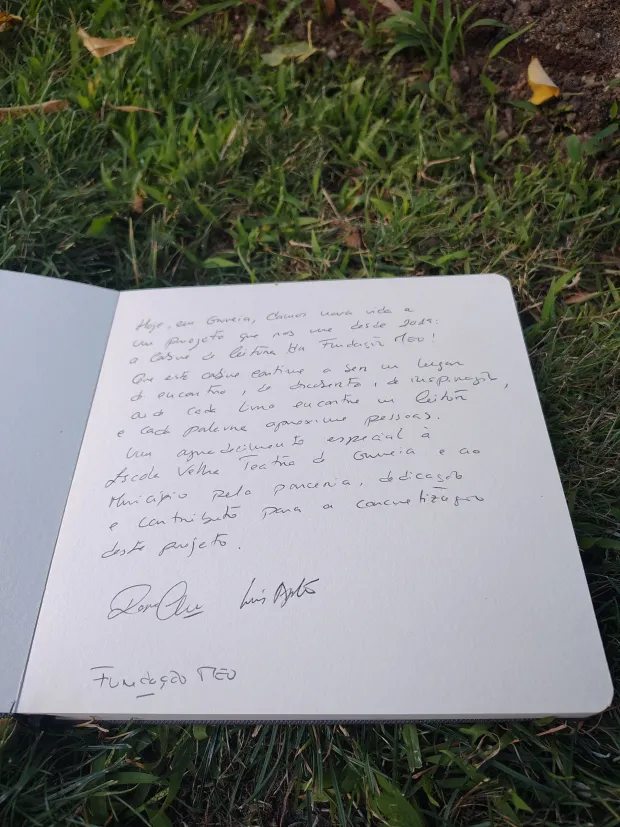 Hoje, em Gouveia, damos nova vida a
um projeto que nos une desde 2019:
a Cabine de Leitura da Fundação MEO!
Que esta cabine continue a ser um lugar
de encontro, de descoberta, de inspiração,
onde cada livro encontre um leitor
e cada palavra aproxime pessoas.
Um agradecimento especial à
Escola Velha Teatro de Gouveia e ao
Município pela parceria, dedicação
e contributo para a concretização
deste projeto.
Luís
Fundação MEO